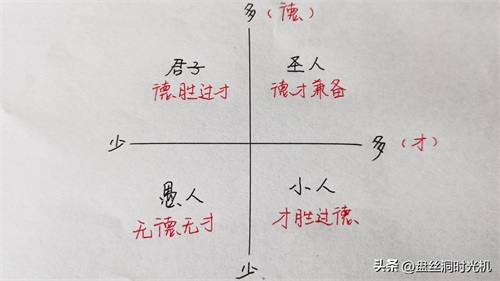 多（德）
君子
德胜过才
圣人
德才兼备
少
多（才）
愚人
无德无才
小人
才胜过德
少
头条 @盘丝洞时光机